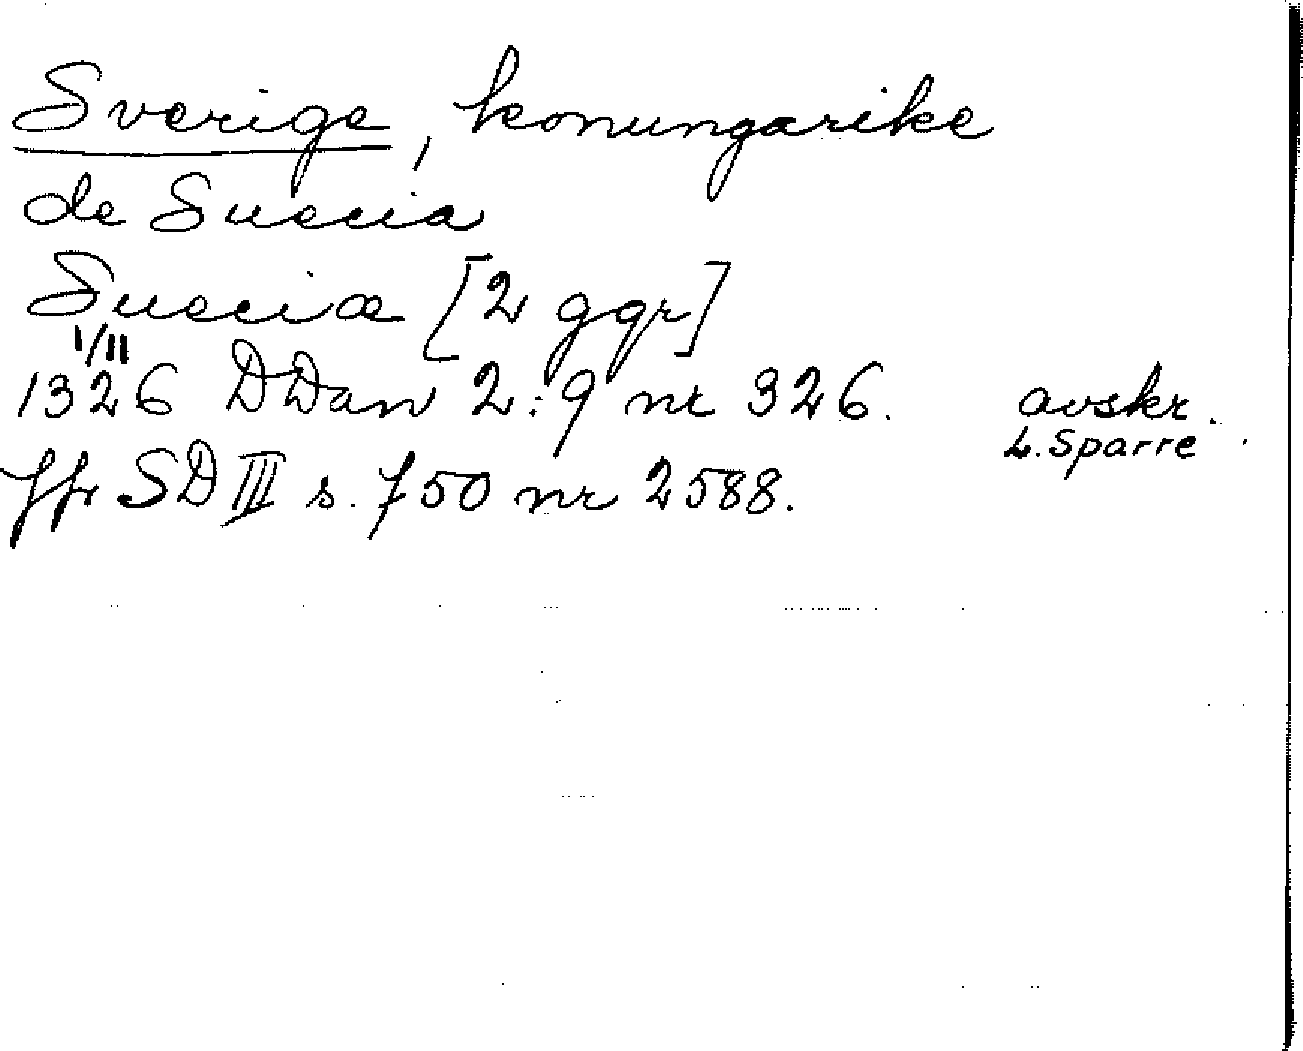 Sverige, konungarike
de Suecia
Sueciæ [2 ggr]
1/11
1326 DDan 2:9 nr 326. avskr.
L. Sparre
Jfr SD III s. 750 nr 2588.